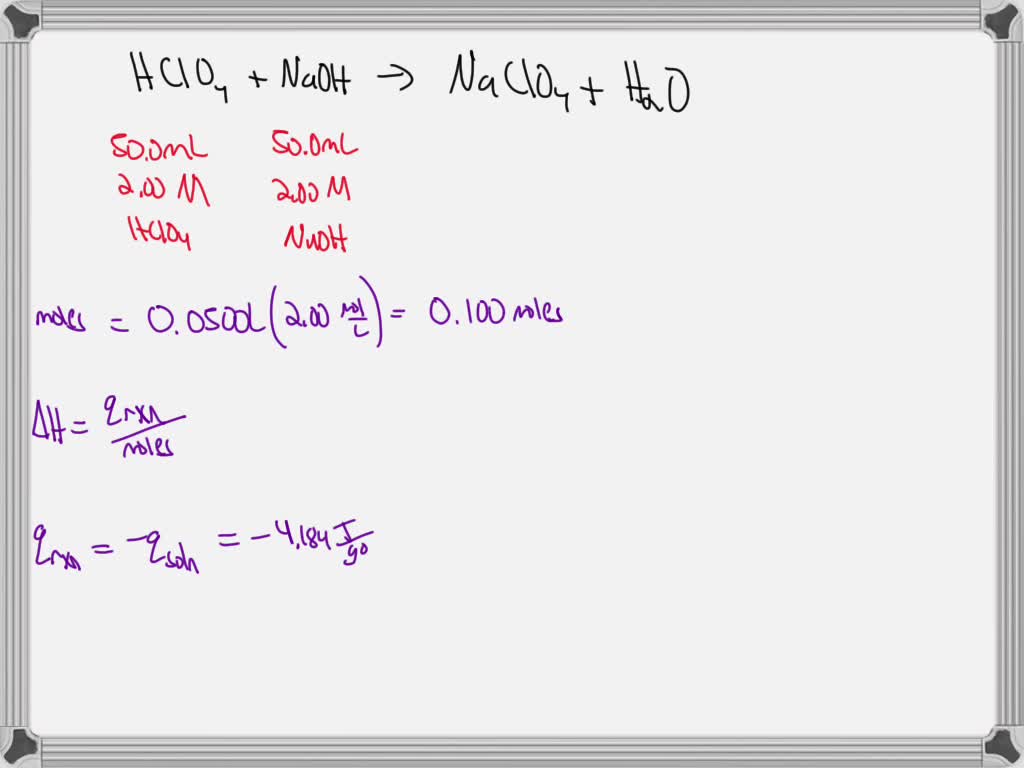 HClO₄ + NaOH → NaClO₄ + H₂O
50.0mL 50.0mL
2.00 M 2.00 M
HClO₄ NaOH
moles = 0.0500L (2.00 mol/L) = 0.100 moles
ΔH = q rxn / moles
q rxn = -q soln = -4.184 J/g°